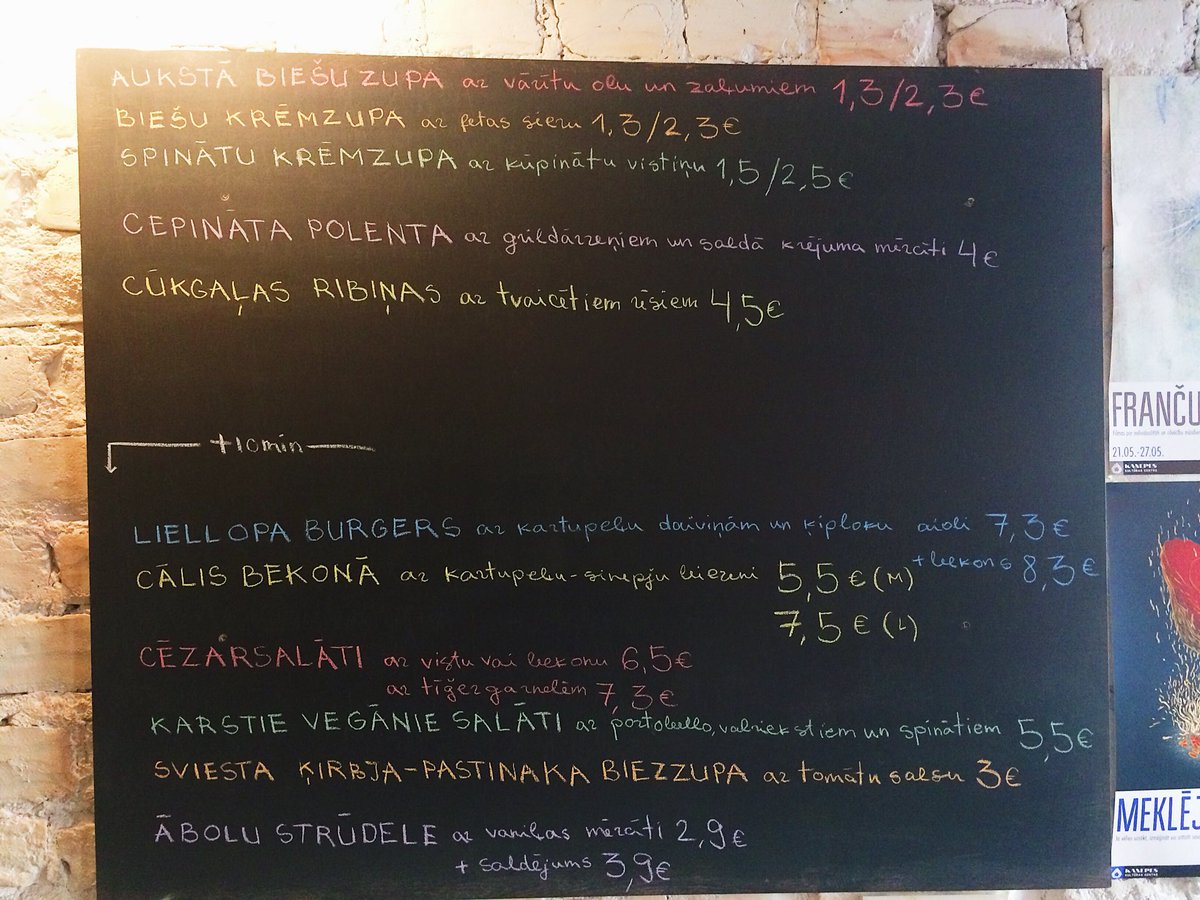 AUKSTĀ BIEŠU ZUPA ar vārītu olu un zaļumiem 1,3/2,3€
BIEŠU KRĒMZUPA ar fetas sieru 1,3/2,3€
SPINĀTU KRĒMZUPA ar kūpinātu vistiņu 1,5/2,5€
CEPINĀTA POLENTA ar grildārzeņiem un saldā krējuma mērcīti 4€
CŪKGAĻAS RIBIŅAS ar tvaicētiem rīsiem 4,5€
+10min
LIELLOPA BURGERS ar kartupeļu daiviņām un ķiploku aioli 7,3€
+ bekons 8,3€
CĀLIS BEKONĀ ar kartupeļu-sinepju biezeni 5,5€ (M)
7,5€ (L)
CĒZARSALĀTI ar vistu vai bekonu 6,5€
ar tīģergarnelēm 7,3€
KARSTIE VEGĀNIE SALĀTI ar portobello, valriekstiem un spinātiem 5,5€
SVIESTA ĶIRBJA-PASTINAKA BIEZZUPA ar tomātu salsu 3€
ĀBOLU STRŪDELE ar vaniļas mērcīti 2,9€
+ saldējums 3,9€
FRANČU
21.05.-27.05.
KAŅEPES
KULTŪRAS CENTRS
MEKLĒJ
KAŅEPES
KULTŪRAS CENTRS